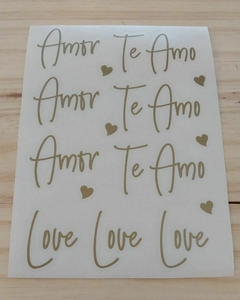 Amor Te Amo
Amor Te Amo
Amor Te Amo
Love Love Love